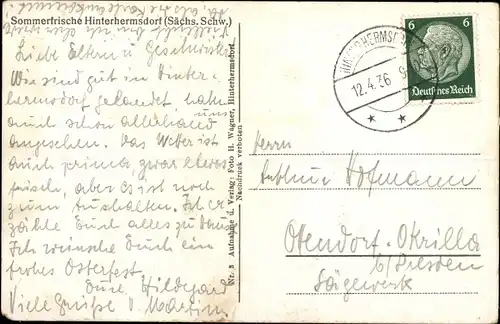 Sommerfrische Hinterhermsdorf (Sächs. Schw.)
Liebe Eltern u. Geschwister
Wir sind gut in Hinter-
hermsdorf gelandet, haben
uns
auch schon allerhand
angesehen. Das Wetter ist
auch prima, zwar etwas
frisch, aber es ist noch
zum Aushalten. Ich er-
zähle Euch alles zu Haus.
Ich wünsche Euch ein
frohes Osterfest
Eure Hildegard
Viele Grüße v. Martin
Nr. 3 Aufnahme u. Verlag: Foto H. Wagner, Hinterhermsdorf.
Nachdruck verboten
HINTERHERMSDORF
12.4.36 9
6 6
Deutsches Reich
Herrn
Arthur Hofmann
Ottendorf-Okrilla
b/Dresden
Sägewerk